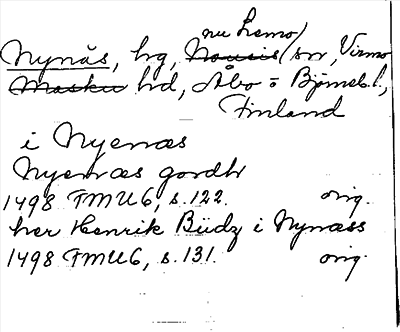 nu Lemo/
Nynäs, hg, Nousis sn, Virmo
Masku hd, Åbo o Björneb. l,
Finland
i Nyenæs
Nyenæs gordh
1498 FMU6, s. 122. orig.
her Henrik Büdz i Nynæss
1498 FMU6, s. 131. orig.